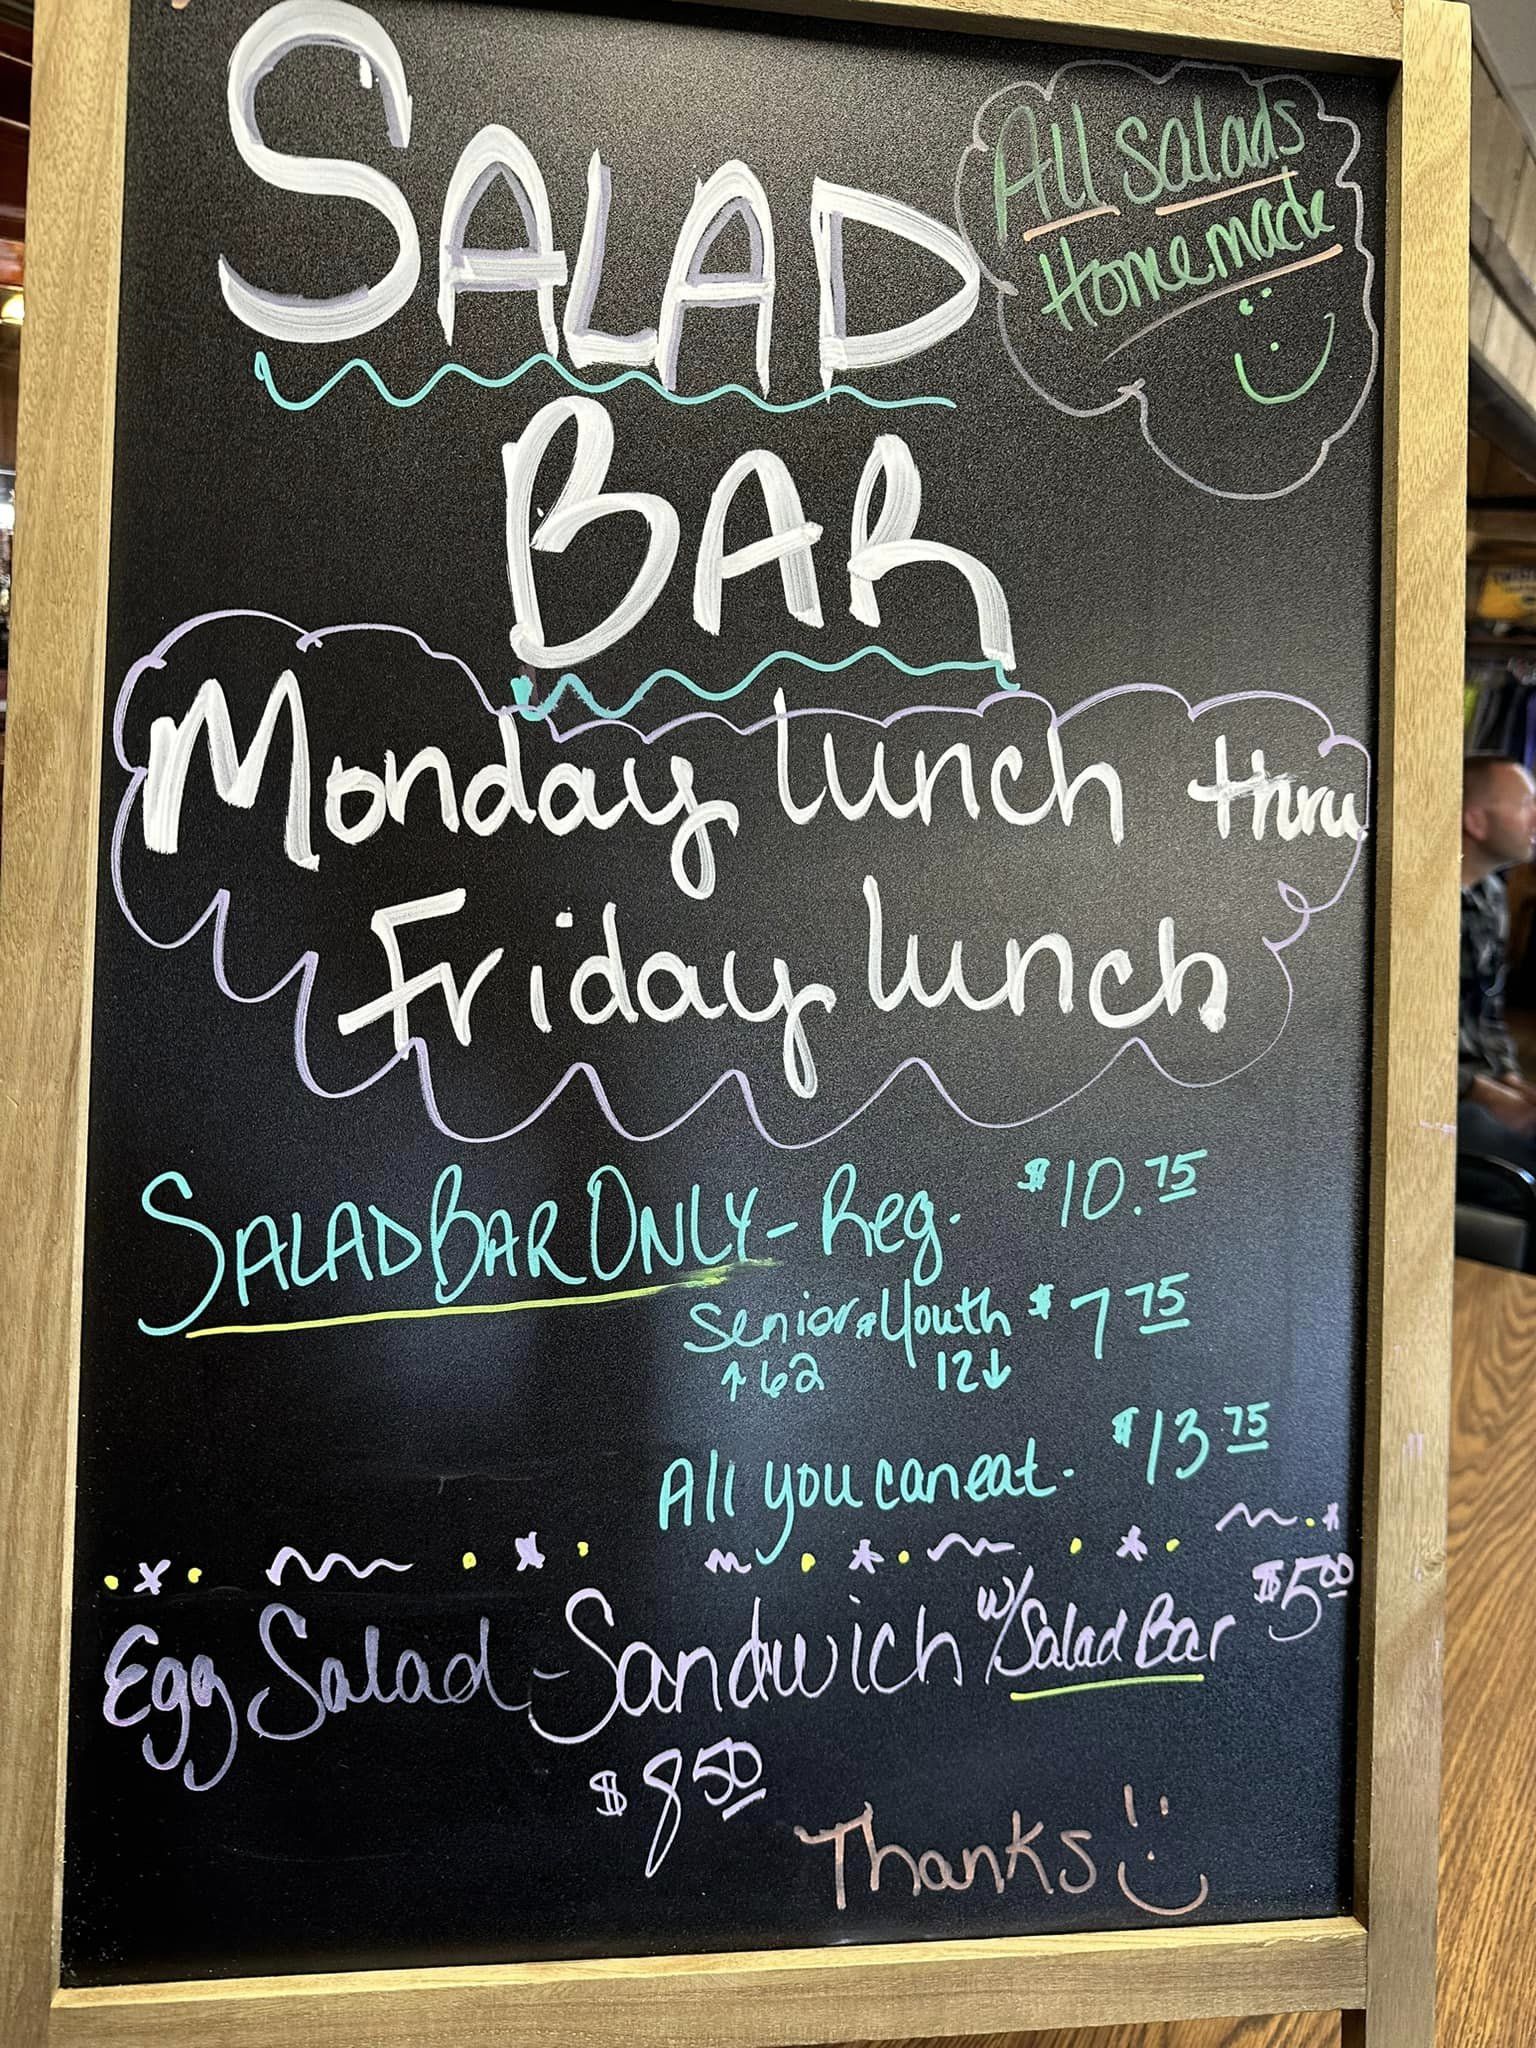 SALAD
All Salads
Homemade
BAR
Monday lunch thru
Friday lunch
SALAD BAR ONLY - Reg. $10.75
Senior & Youth $7 75
↑62 12↓
All you can eat - $13 75
Egg Salad - Sandwich w/ Salad Bar $5 00
$8 50
Thanks